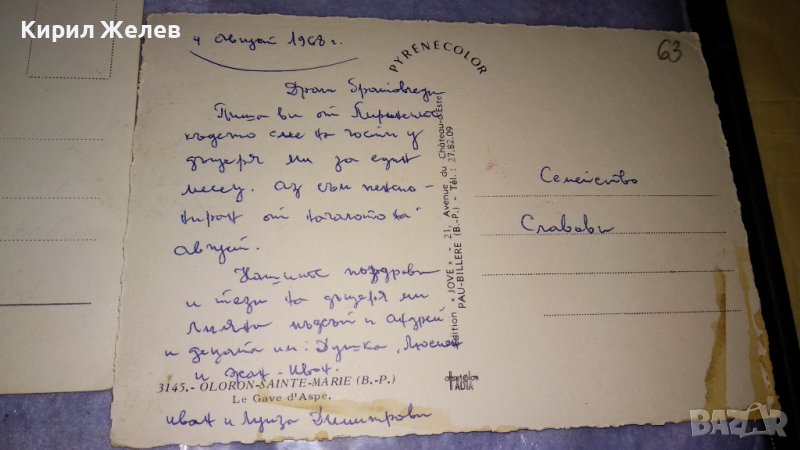 Кирил Желев
4 Август 1968 г.
PYRENECOLOR
63
Драги Братовчеди
Пиша ви от Пиринеите
където сме на гости у
дъщеря ми за един
месец. Аз съм пенсио-
ниран от началото на
Август.
Нашите поздрави
и тези на дъщеря ми
Лиляна мъжът и Андрей
и децата им:
и Жан-Иван.
3145.- OLORON-SAINTE-MARIE (B.-P.)
Le Gave d'Aspe.
Иван и Луиза Димитрови
Edition "JOVE" - 21, Avenue du Château-d'Este
PAU-BILLERE (B.-P.) - Tél.: 27.82.09
Семейство
Славови
BAZAR